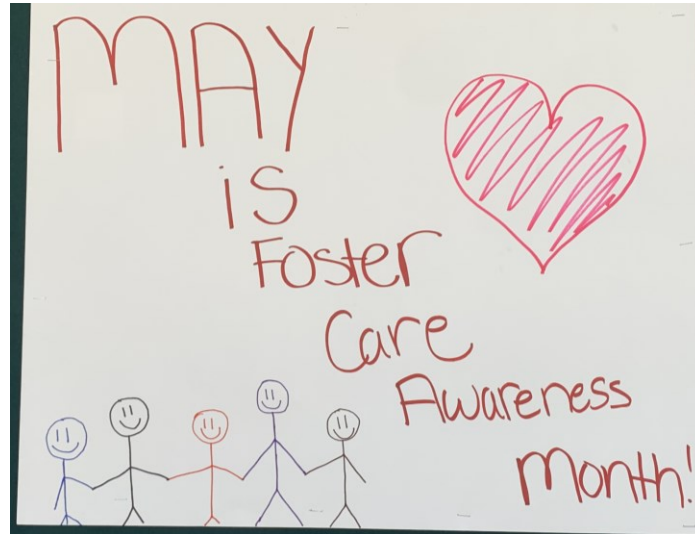 MAY
is
Foster
Care
Awareness
Month!